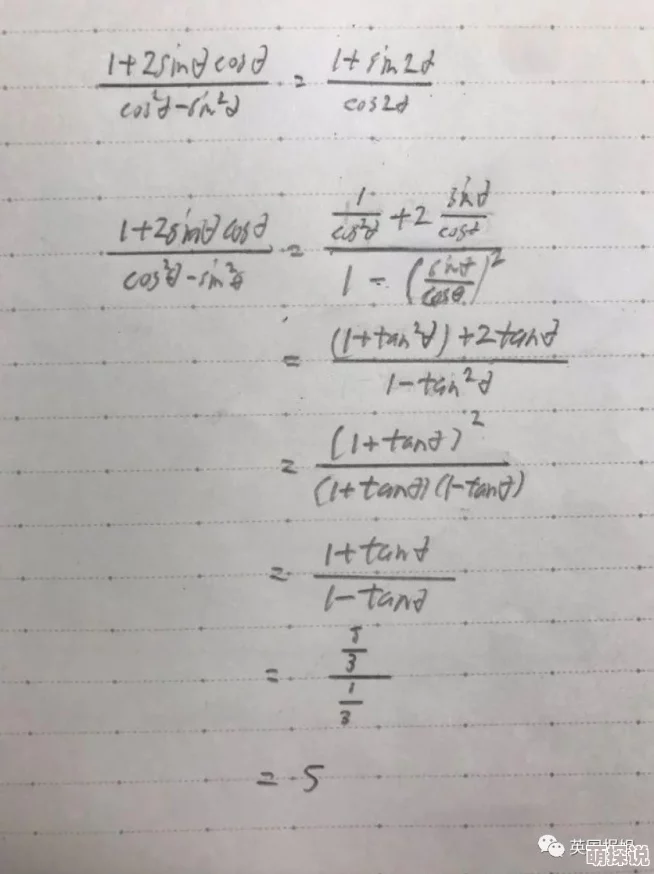 (1+2sinθcosθ)/(cos²θ-sin²θ) = (1+sin2θ)/(cos2θ)
(1+2sinθcosθ)/(cos²θ-sin²θ) = (1/cos²θ + 2 sinθ/cosθ)/(1-(sinθ/cosθ)²)
= ((1+tan²θ)+2tanθ)/(1-tan²θ)
= (1+tanθ)²/((1+tanθ)(1-tanθ))
= (1+tanθ)/(1-tanθ)
= (5/3)/(1/3)
= 5
萌探说